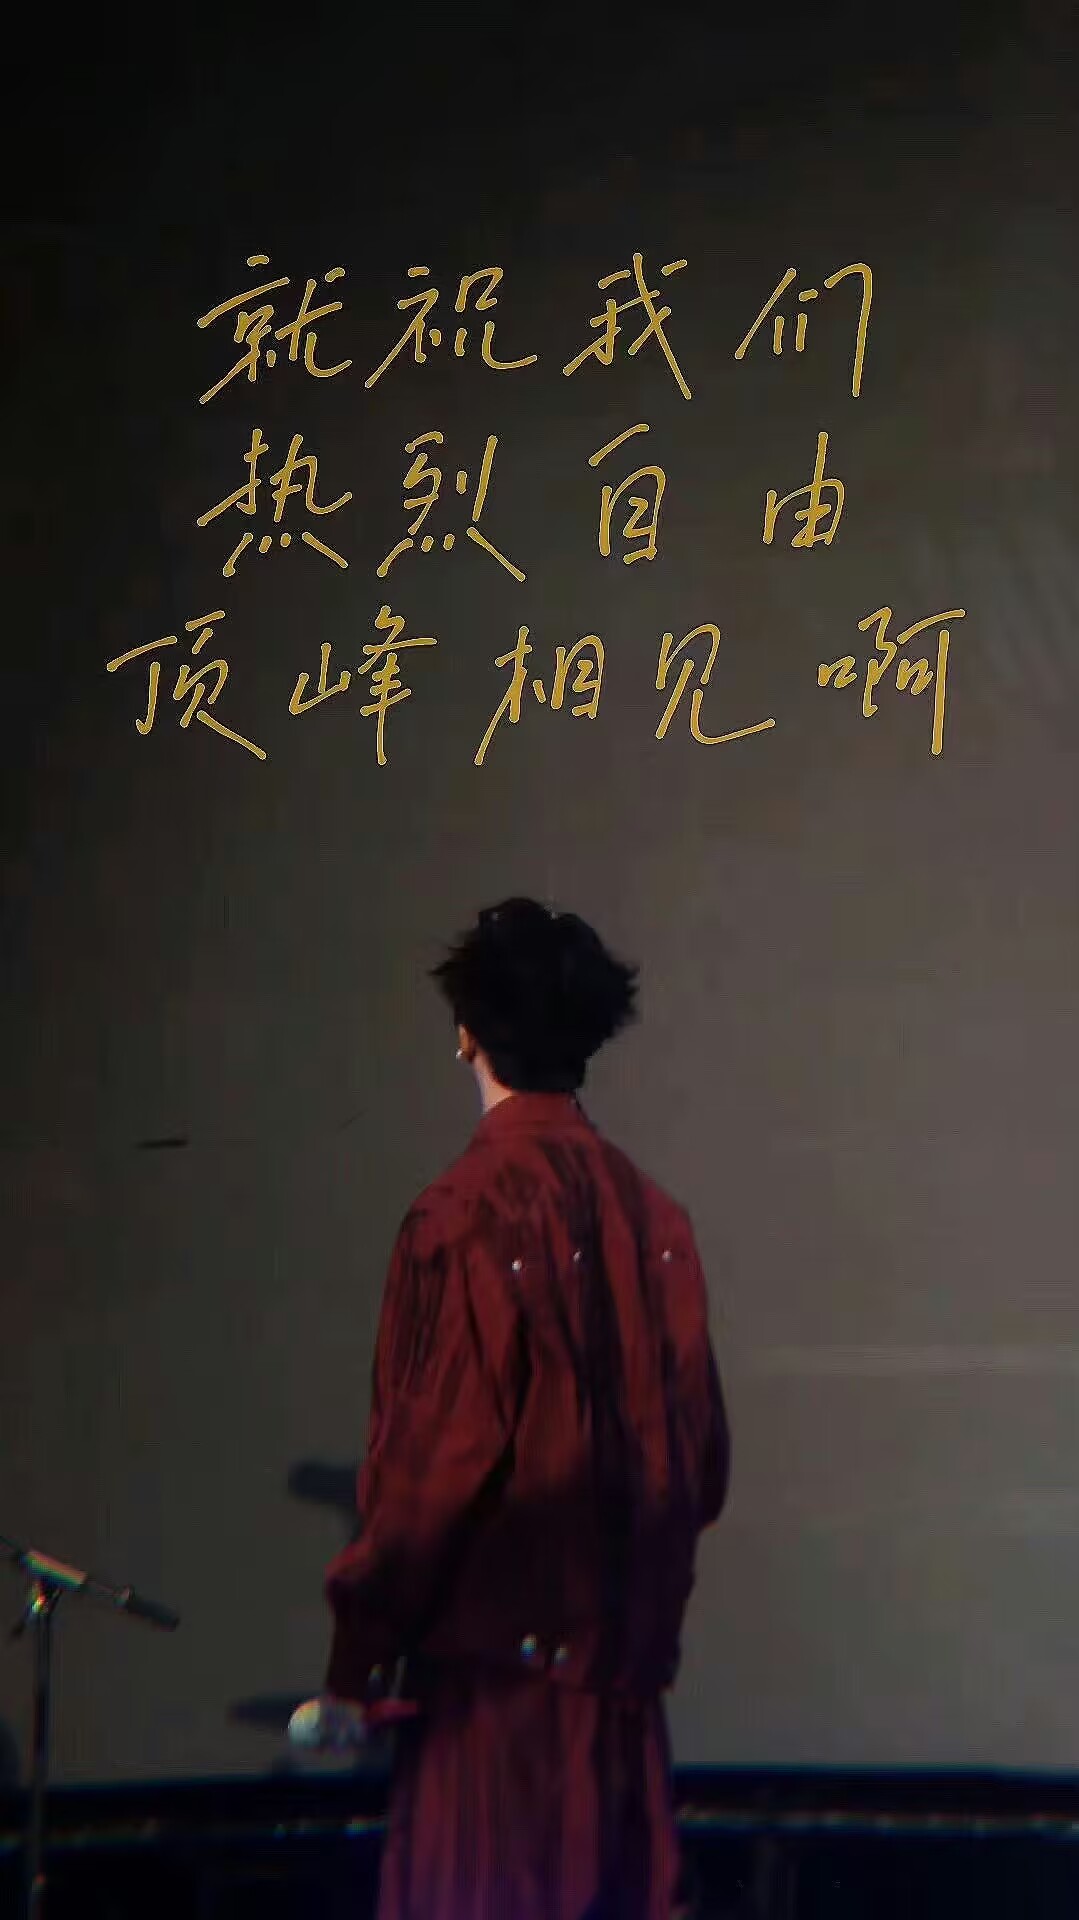 就祝我们
热烈自由
顶峰相见啊